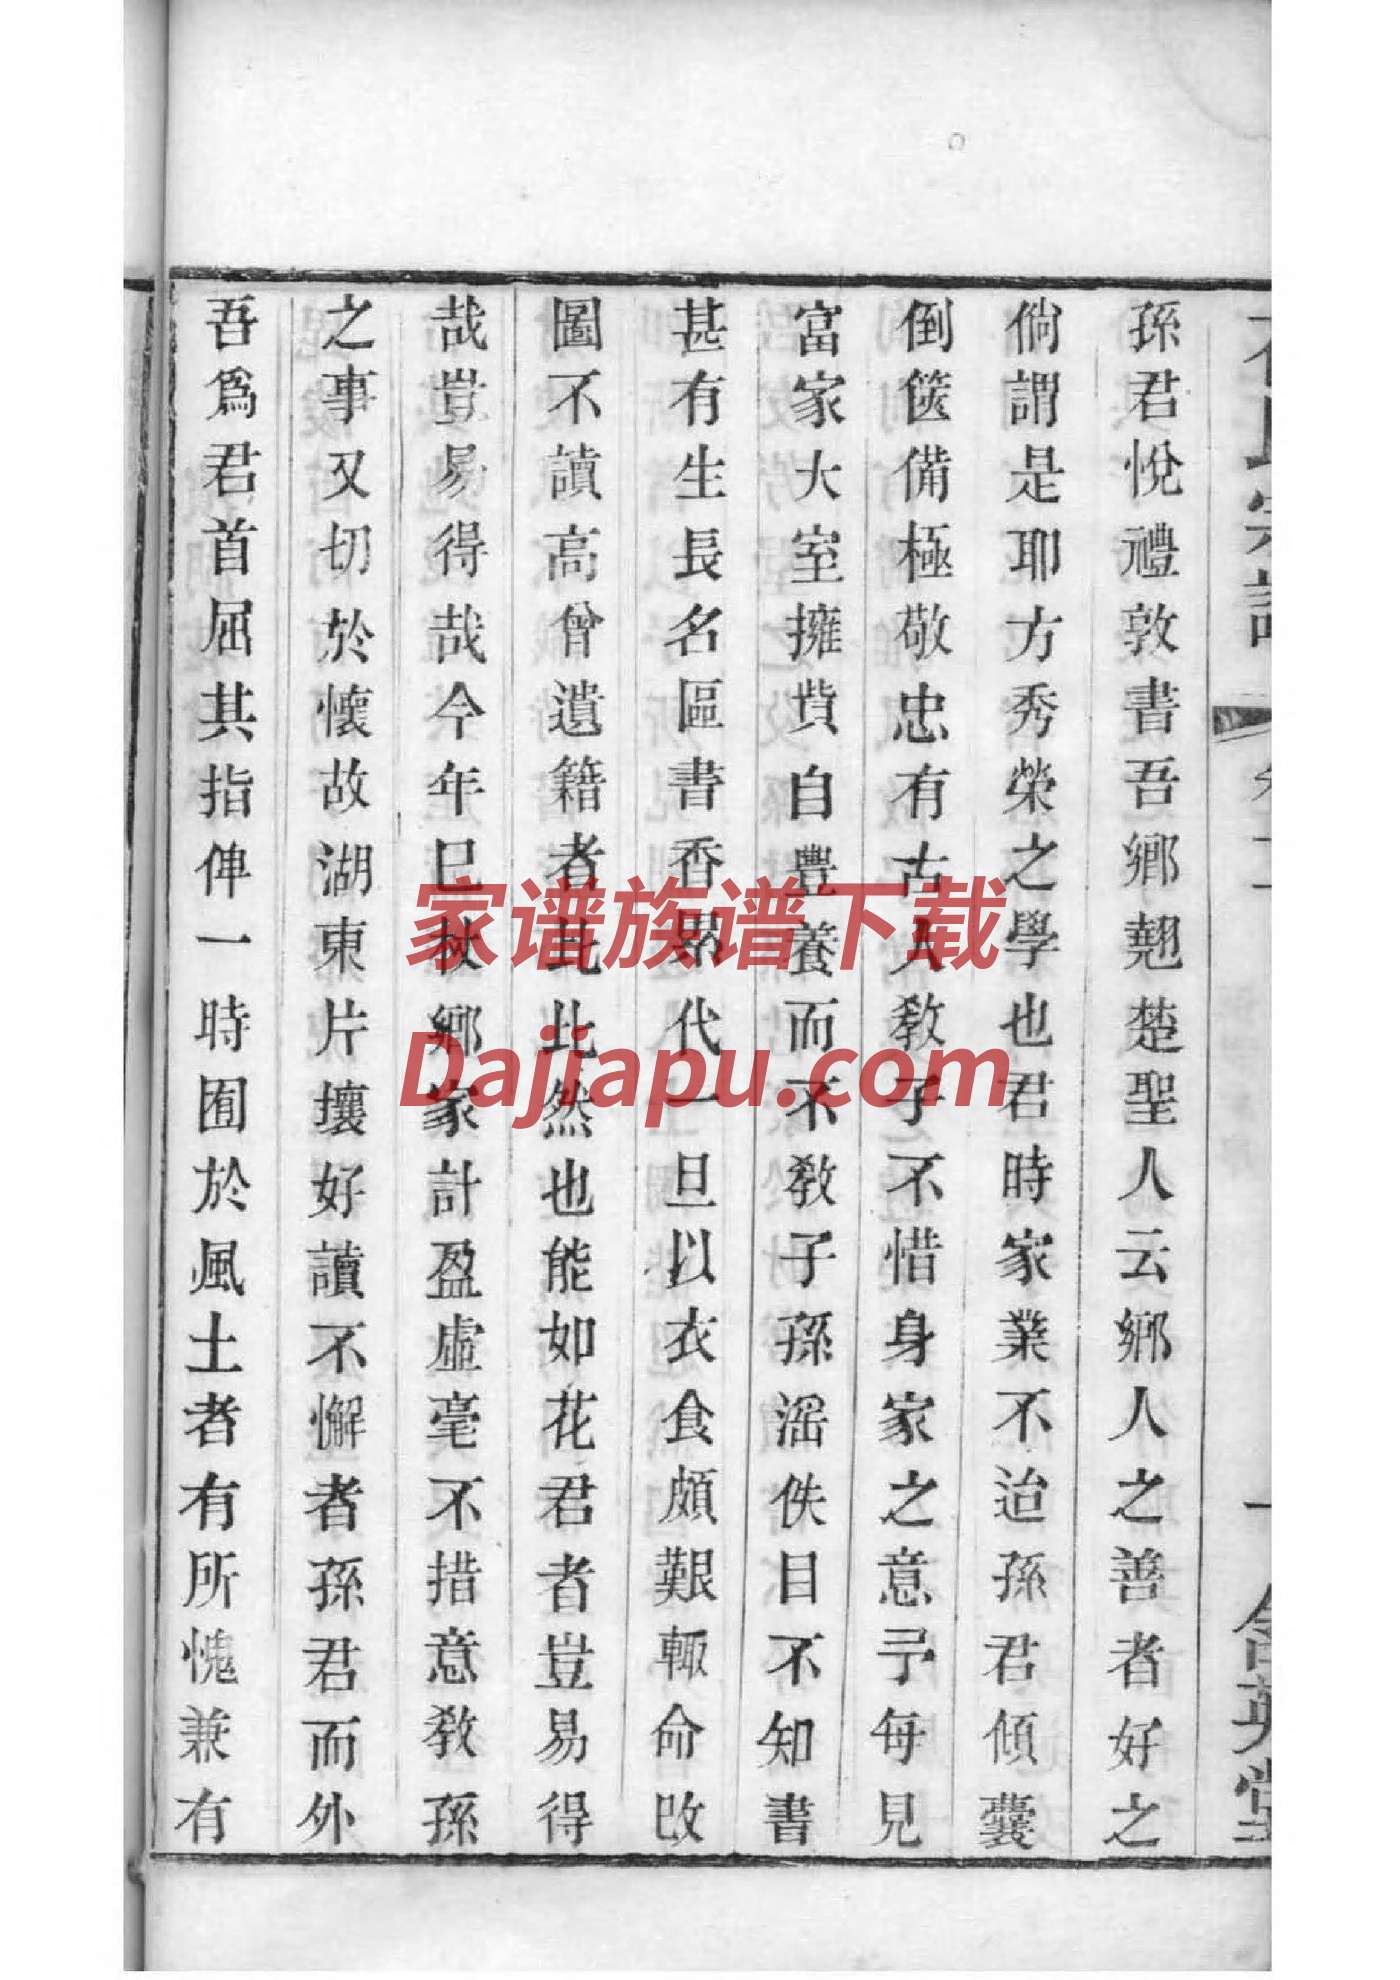 孫君悅禮敦書吾鄉翹楚聖人云鄉人之善者好之
倘謂是耶方秀榮之學也君時家業不迨孫君傾囊
倒篋備極敬忠有古人教子不惜身家之意予每見
富家大室擁貲自豐養而不教子孫滛佚目不知書
甚有生長名區書香累代一旦以衣食頗艱輙命改
圖不讀高曾遺籍者比比然也能如花君者豈易得
哉豈易得哉今年巳秋鄉家計盈虛毫不措意教孫
之事又切於懷故湖東片壤好讀不懈者孫君而外
吾爲君首屈其指俾一時囿於風土者有所愧兼有
家谱族谱下载
Dajiapu.com